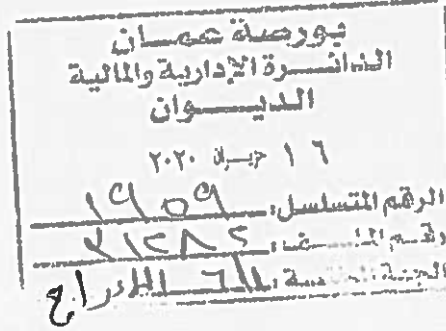 بورصة عمان
الدائرة الإدارية والمالية
الديوان
١٦ حزيران ٢٠٢٠
الرقم المتسلسل: ١٩٥٩
رقم الملف:
الجهة المختصة: الإدراج